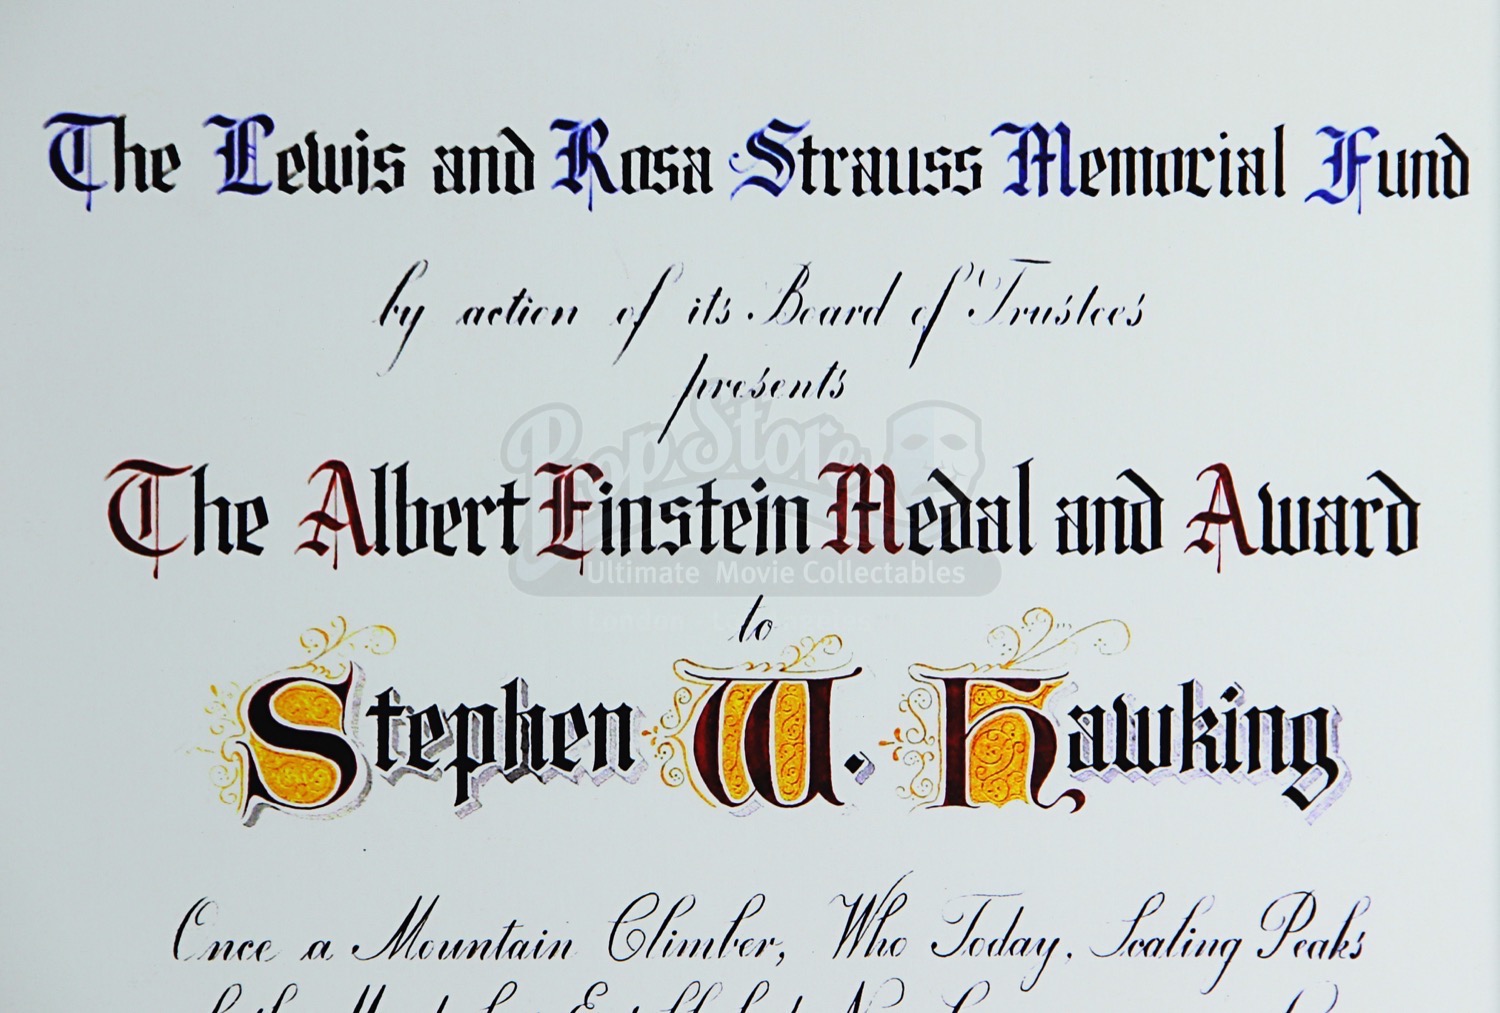 The Lewis and Rosa Strauss Memorial Fund
by action of its Board of Trustees
presents
PropStore
The Albert Einstein Medal and Award
Ultimate Movie Collectables
to
Stephen W. Hawking
Once a Mountain Climber, Who Today, Scaling Peaks